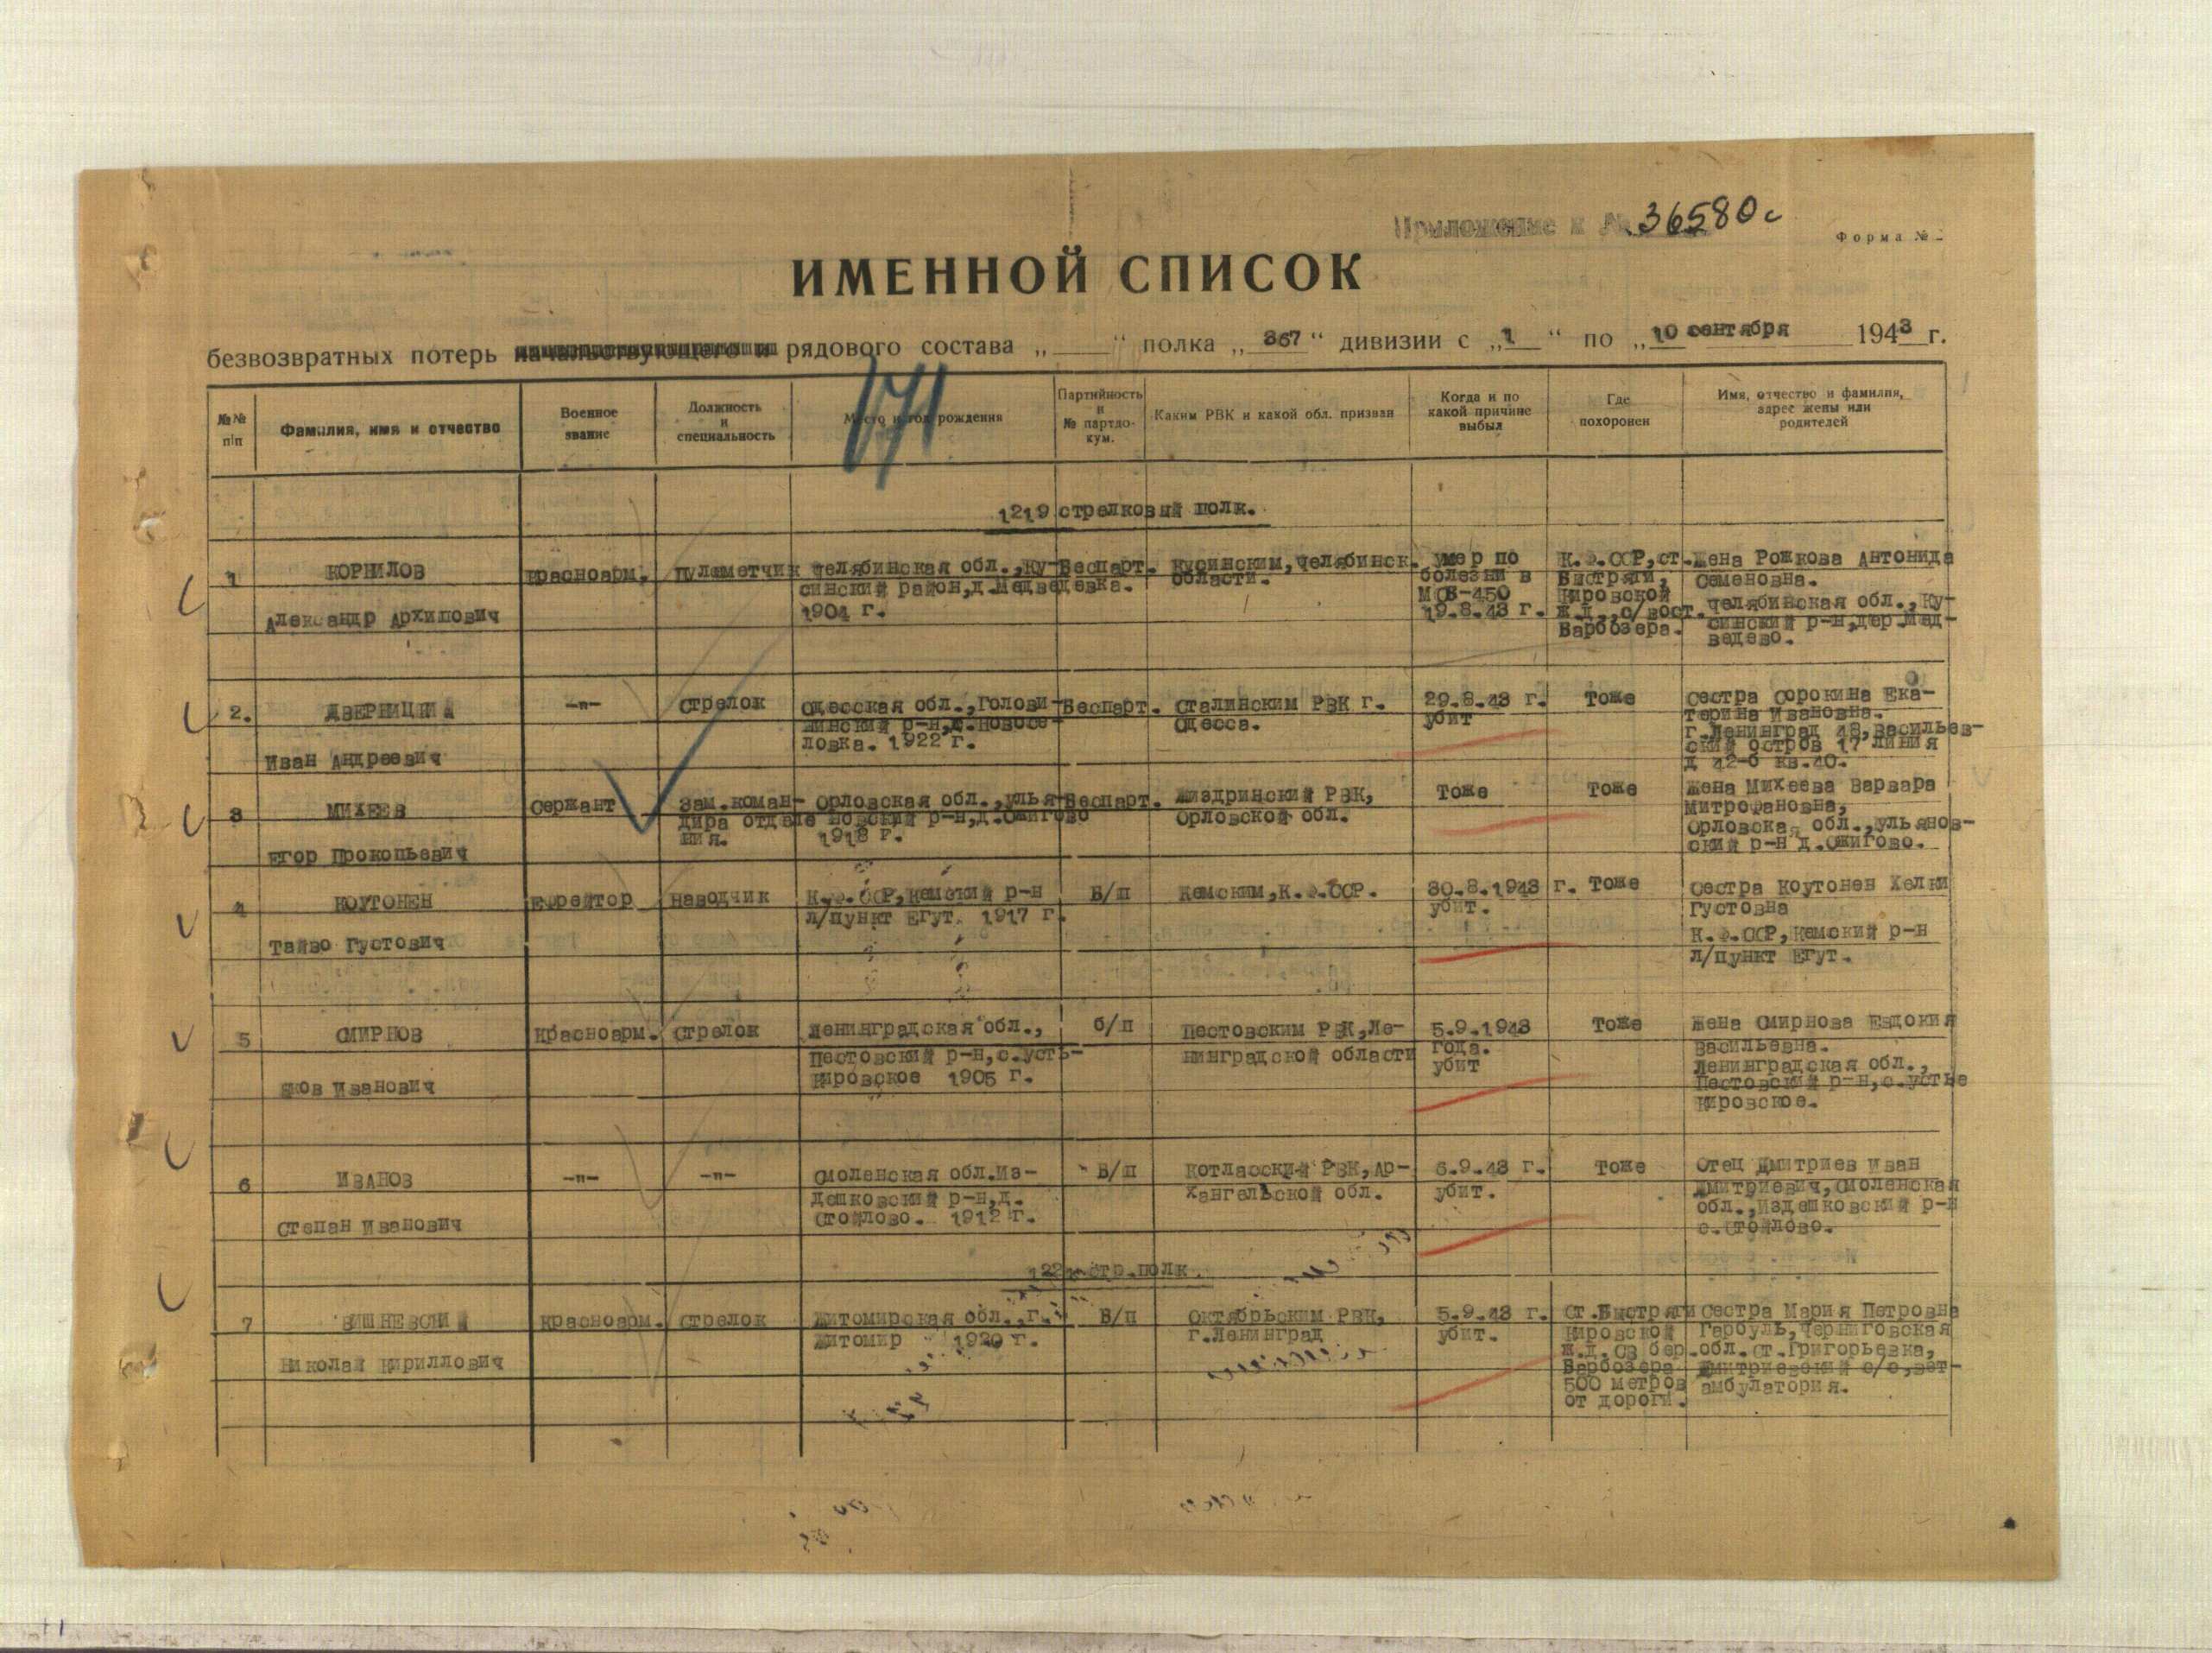 Приложение к № 36580с
Форма №
ИМЕННОЙ СПИСОК
безвозвратных потерь начальствующего и рядового состава „ “ полка „ 367 “ дивизии с „1 “ по „10 сентября 1943 г.
№№ п/п
Фамилия, имя и отчество
Военное звание
Должность и специальность
Место и год рождения
Партийность и № партдокум.
Каким РВК и какой обл. призван
Когда и по какой причине выбыл
Где похоронен
Имя, отчество и фамилия, адрес жены или родителей
171
1219 стрелковый полк.
1
КОРНИЛОВ
Александр Архипович
Красноарм.
пулеметчик
Челябинская обл., Ку-
синский район, д.Медведевка.
1904 г.
Беспарт.
Кусинским, Челябинск.
области.
умер по
болезни в
МСБ-450
19.8.43 г.
К.Ф.ССР, ст.
Быстряги,
Кировской
ж.д., с/вост.
Варбозера.
Жена Рожкова Антонида
Семеновна.
Челябинская обл., Ку-
синский р-н, дер.Мед-
ведево.
2.
ДВЕРНИЦКИЙ
Иван Андреевич
-"-
стрелок
Одесская обл., Голови-
нинский р-н, с.Новосе-
ловка. 1922 г.
Беспарт.
Сталинским РВК г.
Одесса.
29.8.43 г.
убит
Тоже
Сестра Сорокина Ека-
терина Ивановна.
г.Ленинград 48, Васильев-
ский остров 17 линия
д 42-6 кв.40.
3
МИХЕЕВ
Егор Прокопьевич
Сержант
Зам.коман-
дира отделе
ния.
Орловская обл., Улья-
новский р-н, д.Ожигово
1918 г.
Беспарт.
Жиздринский РВК,
Орловской обл.
Тоже
Тоже
Жена Михеева Варвара
Митрофановна,
Орловская обл., Ульянов-
ский р-н д.Ожигово.
4
КОУТОНЕН
Тайво Густович
Ефрейтор
Наводчик
К.Ф.ССР, Кемский р-н
л/пункт Егут. 1917 г.
Б/п
Кемским, К.Ф.ССР.
30.8.1943 г.
убит.
Тоже
Сестра Коутонен Хелми
Густовна
К.Ф.ССР, Кемский р-н
л/пункт Егут.
5
СМИРНОВ
Яков Иванович
Красноарм.
стрелок
Ленинградская обл.,
Пестовский р-н, с.Усть-
Кировское 1905 г.
б/п
Пестовским РВК, Ле-
нинградской области
5.9.1943
года.
убит
Тоже
Жена Смирнова Евдокия
Васильевна.
Ленинградская обл.,
Пестовский р-н, с.Устье
Кировское.
6
ИВАНОВ
Степан Иванович
-"-
-"-
Смоленская обл.Из-
дешковский р-н, д.
Стойлово. 1912 г.
Б/п
Котласский РВК, Ар-
хангельской обл.
6.9.43 г.
убит.
Тоже
Отец Дмитриев Иван
Дмитриевич, Смоленская
обл., Издешковский р-н
с.Стойлово.
1221 стр.полк.
7
ВИШНЕВСКИЙ
Николай Кириллович
Красноарм.
стрелок
Житомирская обл., г.
Житомир 1920 г.
Б/п
Октябрьским РВК,
г.Ленинград
5.9.43 г.
убит.
Ст.Быстряги
Кировской
ж.д. СЗ бер.
Варбозера
500 метров
от дороги.
Сестра Мария Петровна
Гарбуль, Черниговская
обл.ст.Григорьевка,
Дмитриевский с/с, вет-
амбулатория.